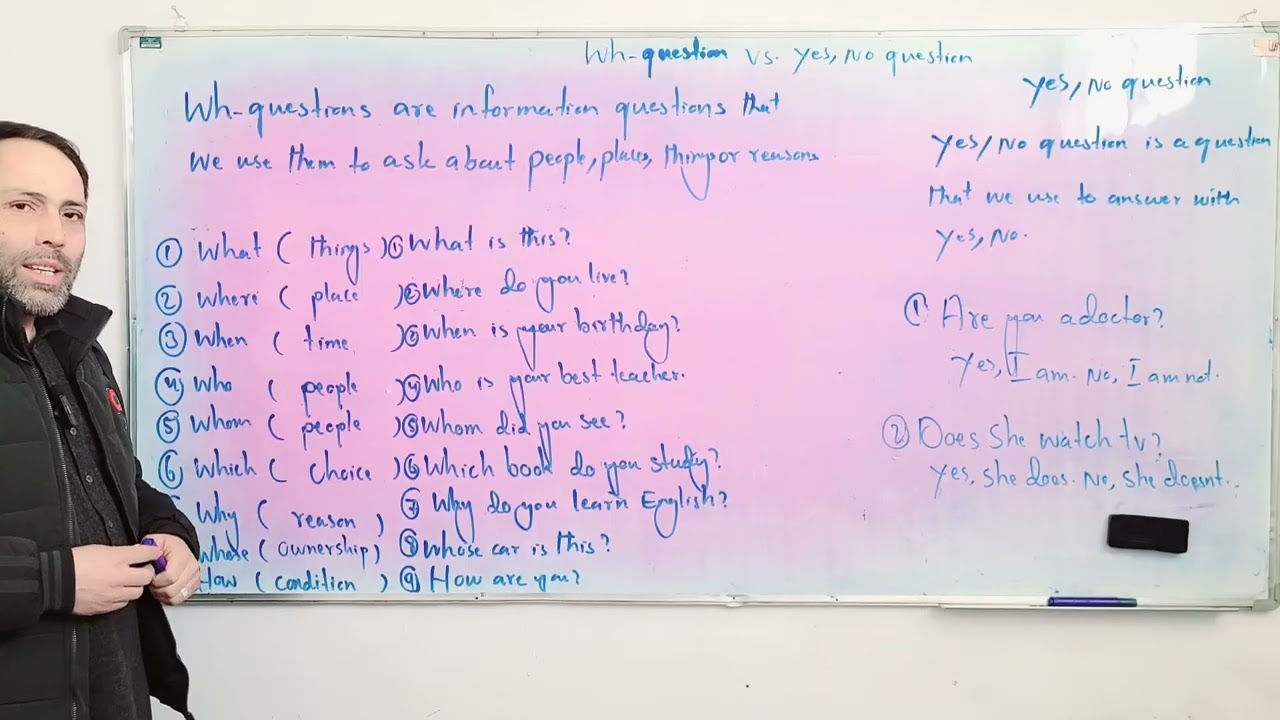 Wh-question vs. Yes, No question
Wh-questions are information questions that
We use them to ask about people, places, things or reasons
① What ( things ) ① What is this?
② Where ( place ) ② Where do you live?
③ When ( time ) ③ When is your birthday?
④ Who ( people ) ④ Who is your best teacher.
⑤ Whom ( people ) ⑤ Whom did you see?
⑥ Which ( choice ) ⑥ Which book do you study?
Why ( reason ) ⑦ Why do you learn English?
Whose ( ownership ) ⑧ Whose car is this?
How ( condition ) ⑨ How are you?
Yes, No question
Yes/No question is a question
that we use to answer with
Yes, No.
① Are you a doctor?
Yes, I am. No, I am not.
② Does She watch tv?
Yes, she does. No, She doesnt..